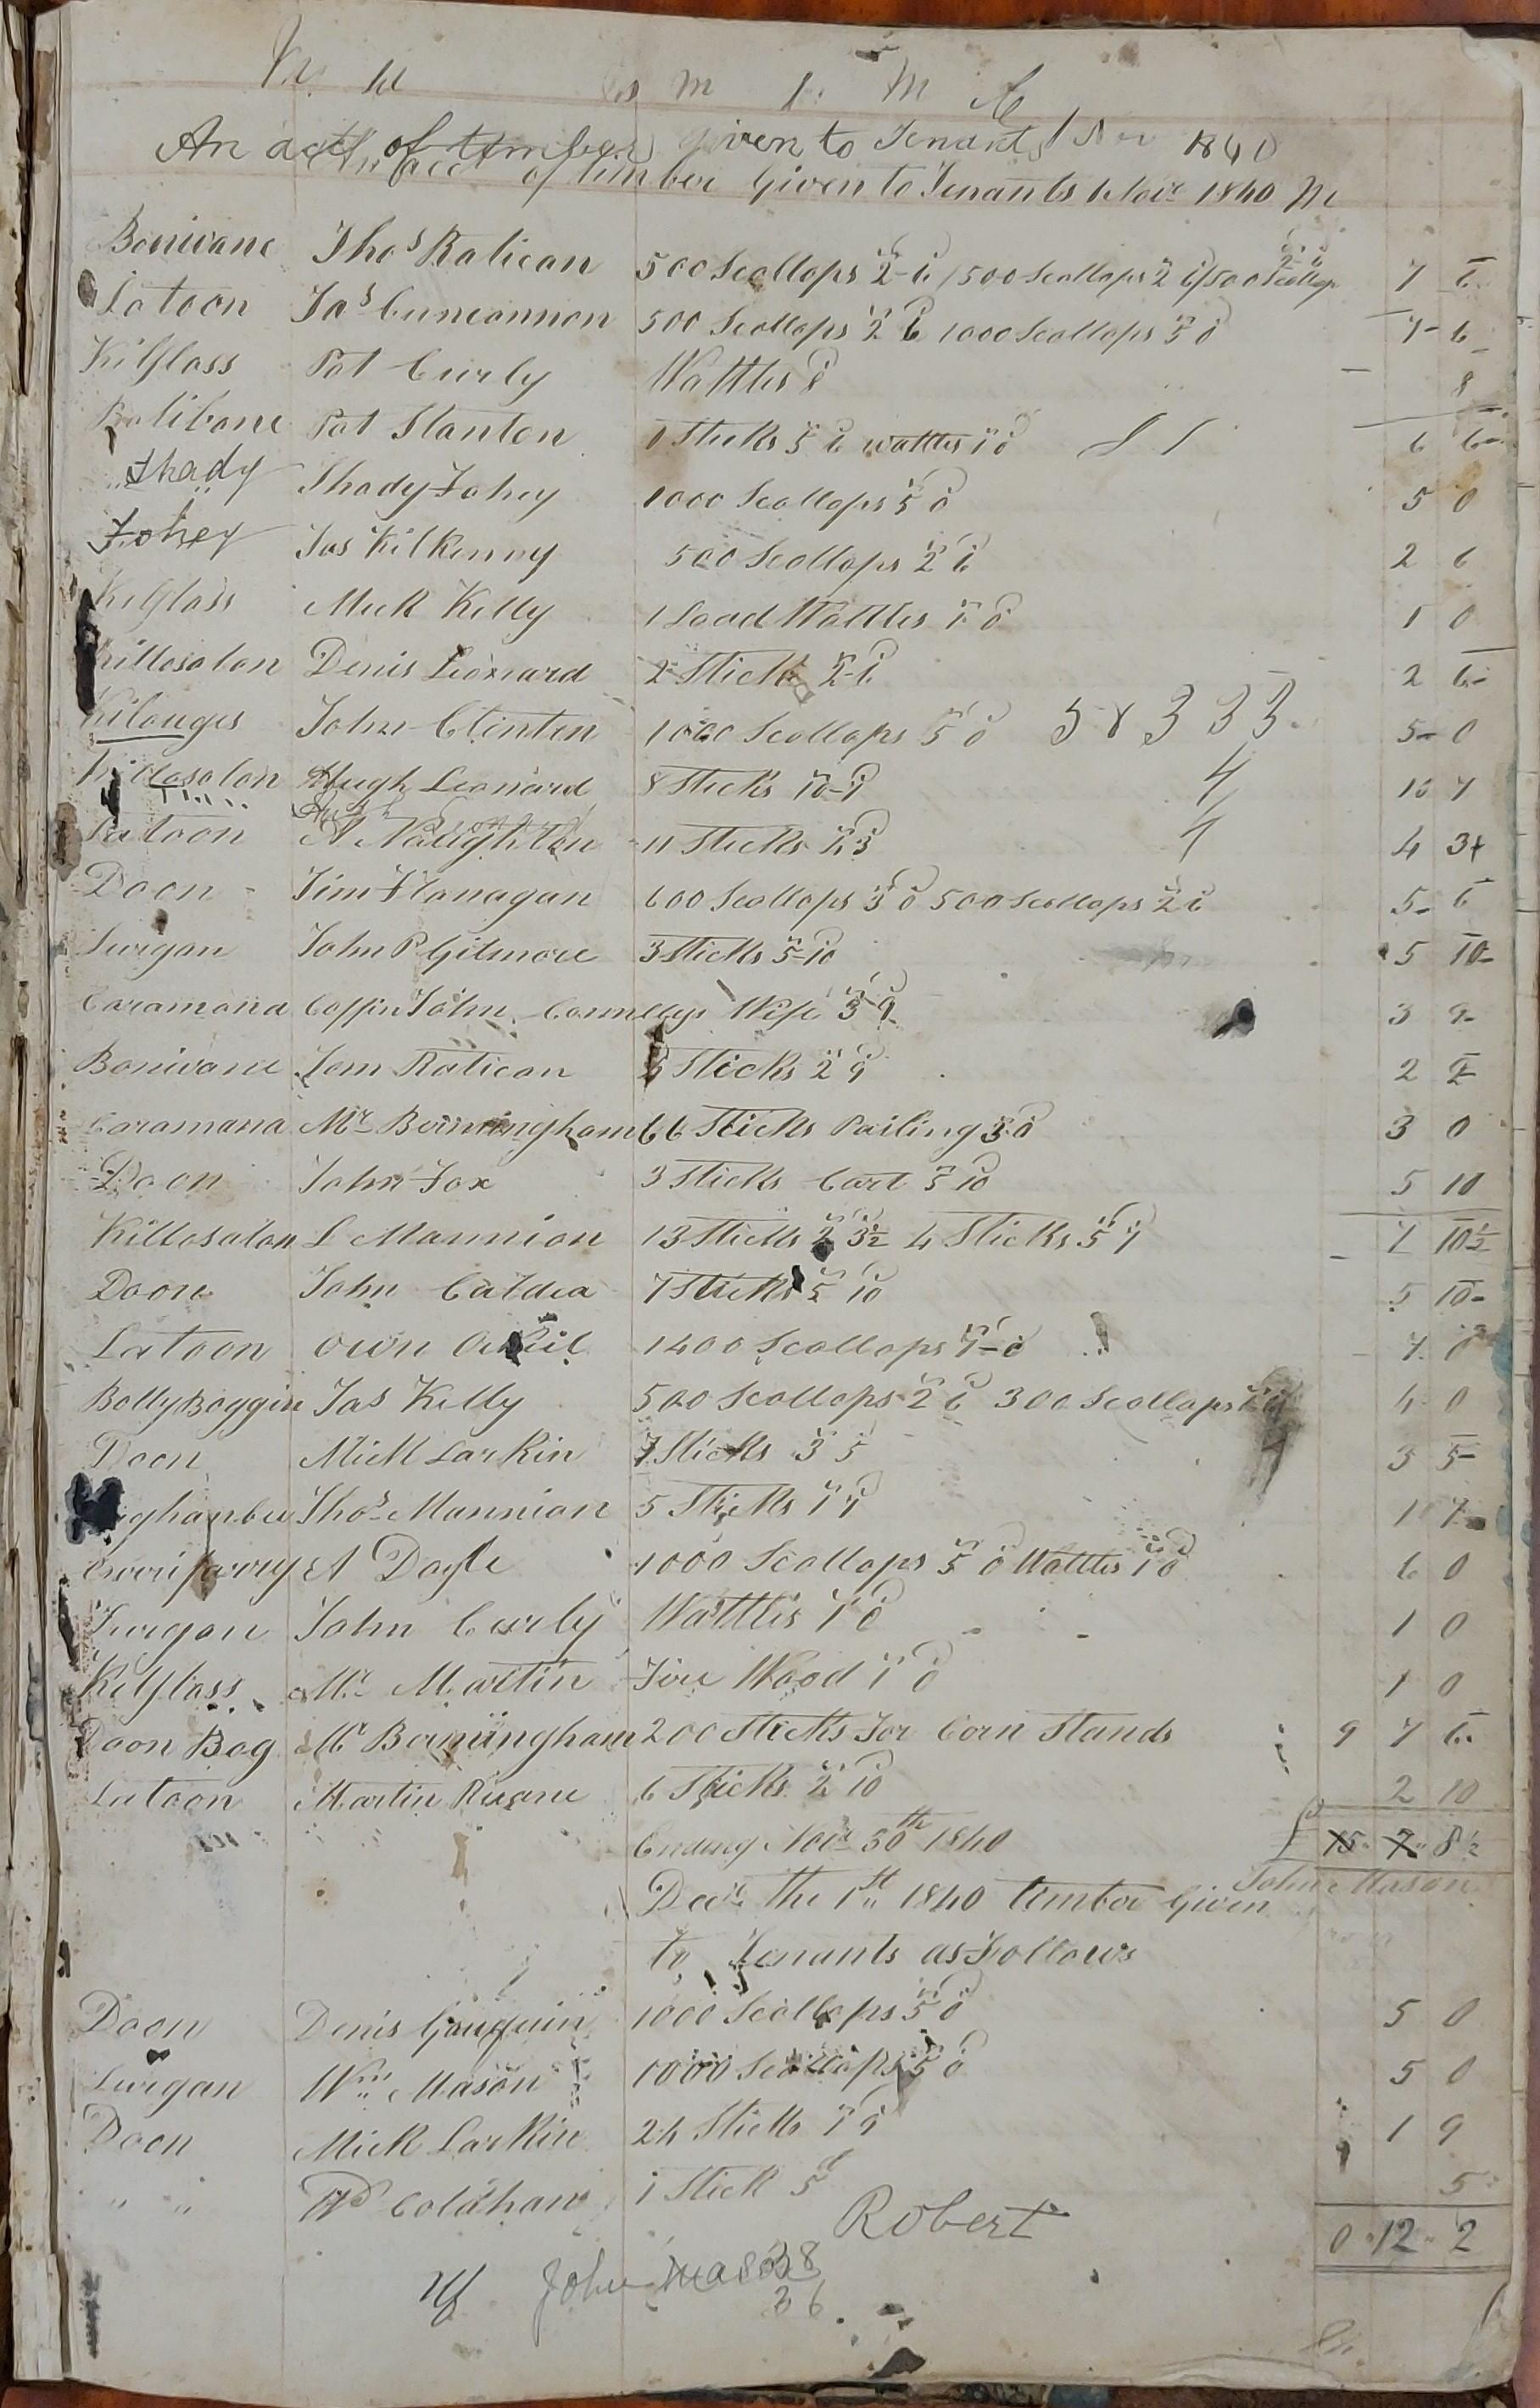 An acct of timber given to Tenants Nov 1840
An acct of timber Given to Tenants Novr 1840 M
Bonivane Thos Ratican 500 Scollops 2-6 / 500 Scollops 2 6 / 500 Scollop 2-6 7 6
Latoon Jas Cunconnon 500 Scollops 2 6 1000 Scollops 5 0 7-6
Kilglass Pat Curly Wattles 8 8
Pat Stanton Sticks 5 6 wattles 1 0 6 6
Thady Thady Fahey 1000 Scollops 5 0 5 0
Fohey Jas Kilkenny 500 Scollops 2 6 2 6
Kilglass Mick Kelly 1 Load Wattles 1 0 1 0
Killosolan Denis Leonard 2 Sticks 2-6 2 6
Kilauges John Clinton 1000 Scollops 5 0 5 8 3 3 3 5-0
Killosolan Hugh Leonard 8 Sticks 10-7 4 10 7
Latoon A Naughton 11 Sticks 4 3 4 3
Doon Tim Flanagan 600 Scollops 3 0 500 Scollops 2 6 5-6
Lurgan John P Gilmore 3 Sticks 5-10 5 10
Caramana Coffin John Connellys Wife 3-9 3 9
Bonivane Tom Ratican 6 Sticks 2 9 2 9
Caramana Mr Bermingham 66 Sticks Pailing 3 0 3 0
Doon John Fox 3 Sticks Cart 5 10 5 10
Killosolan L Mannion 13 Sticks 2 3½ 4 Sticks 5 7 7 10½
Doon John Caldea 7 Sticks 5 10 5 10
Latoon Own 1400 Scollops 7-0 7 0
BollyBoggin Jas Kelly 500 Scollops 2 6 300 Scollops 1 6 4 0
Doon Mick Larkin 7 Sticks 3 5 3 5
Thos Mannion 5 Sticks 1 7 1 7
A Doyle 1000 Scollops 5 0 Wattles 1 0 6 0
Lurgan John Curly Wattles 1 0 1 0
Kilglass Mr Martin Fire Wood 1 0 1 0
Doon Bog Mr Bermingham 200 Sticks For Corn Stands 9 7 6
Latoon Martin Ruane 6 Sticks 2 10 2 10
Ending Novr 30th 1840 £ 15 7 8½
John Mason
Decr The 1st 1840 timber Given
to Tenants as Follows
Doon Denis 1000 Scollops 5 0 5 0
Lurgan Wm Mason 1000 Scollops 5 0 5 0
Doon Mick Larkin 24 Sticks 1 9 1 9
" " Colahan 1 Stick 5d 5
Robert 0 12 2
John Mason 38
36